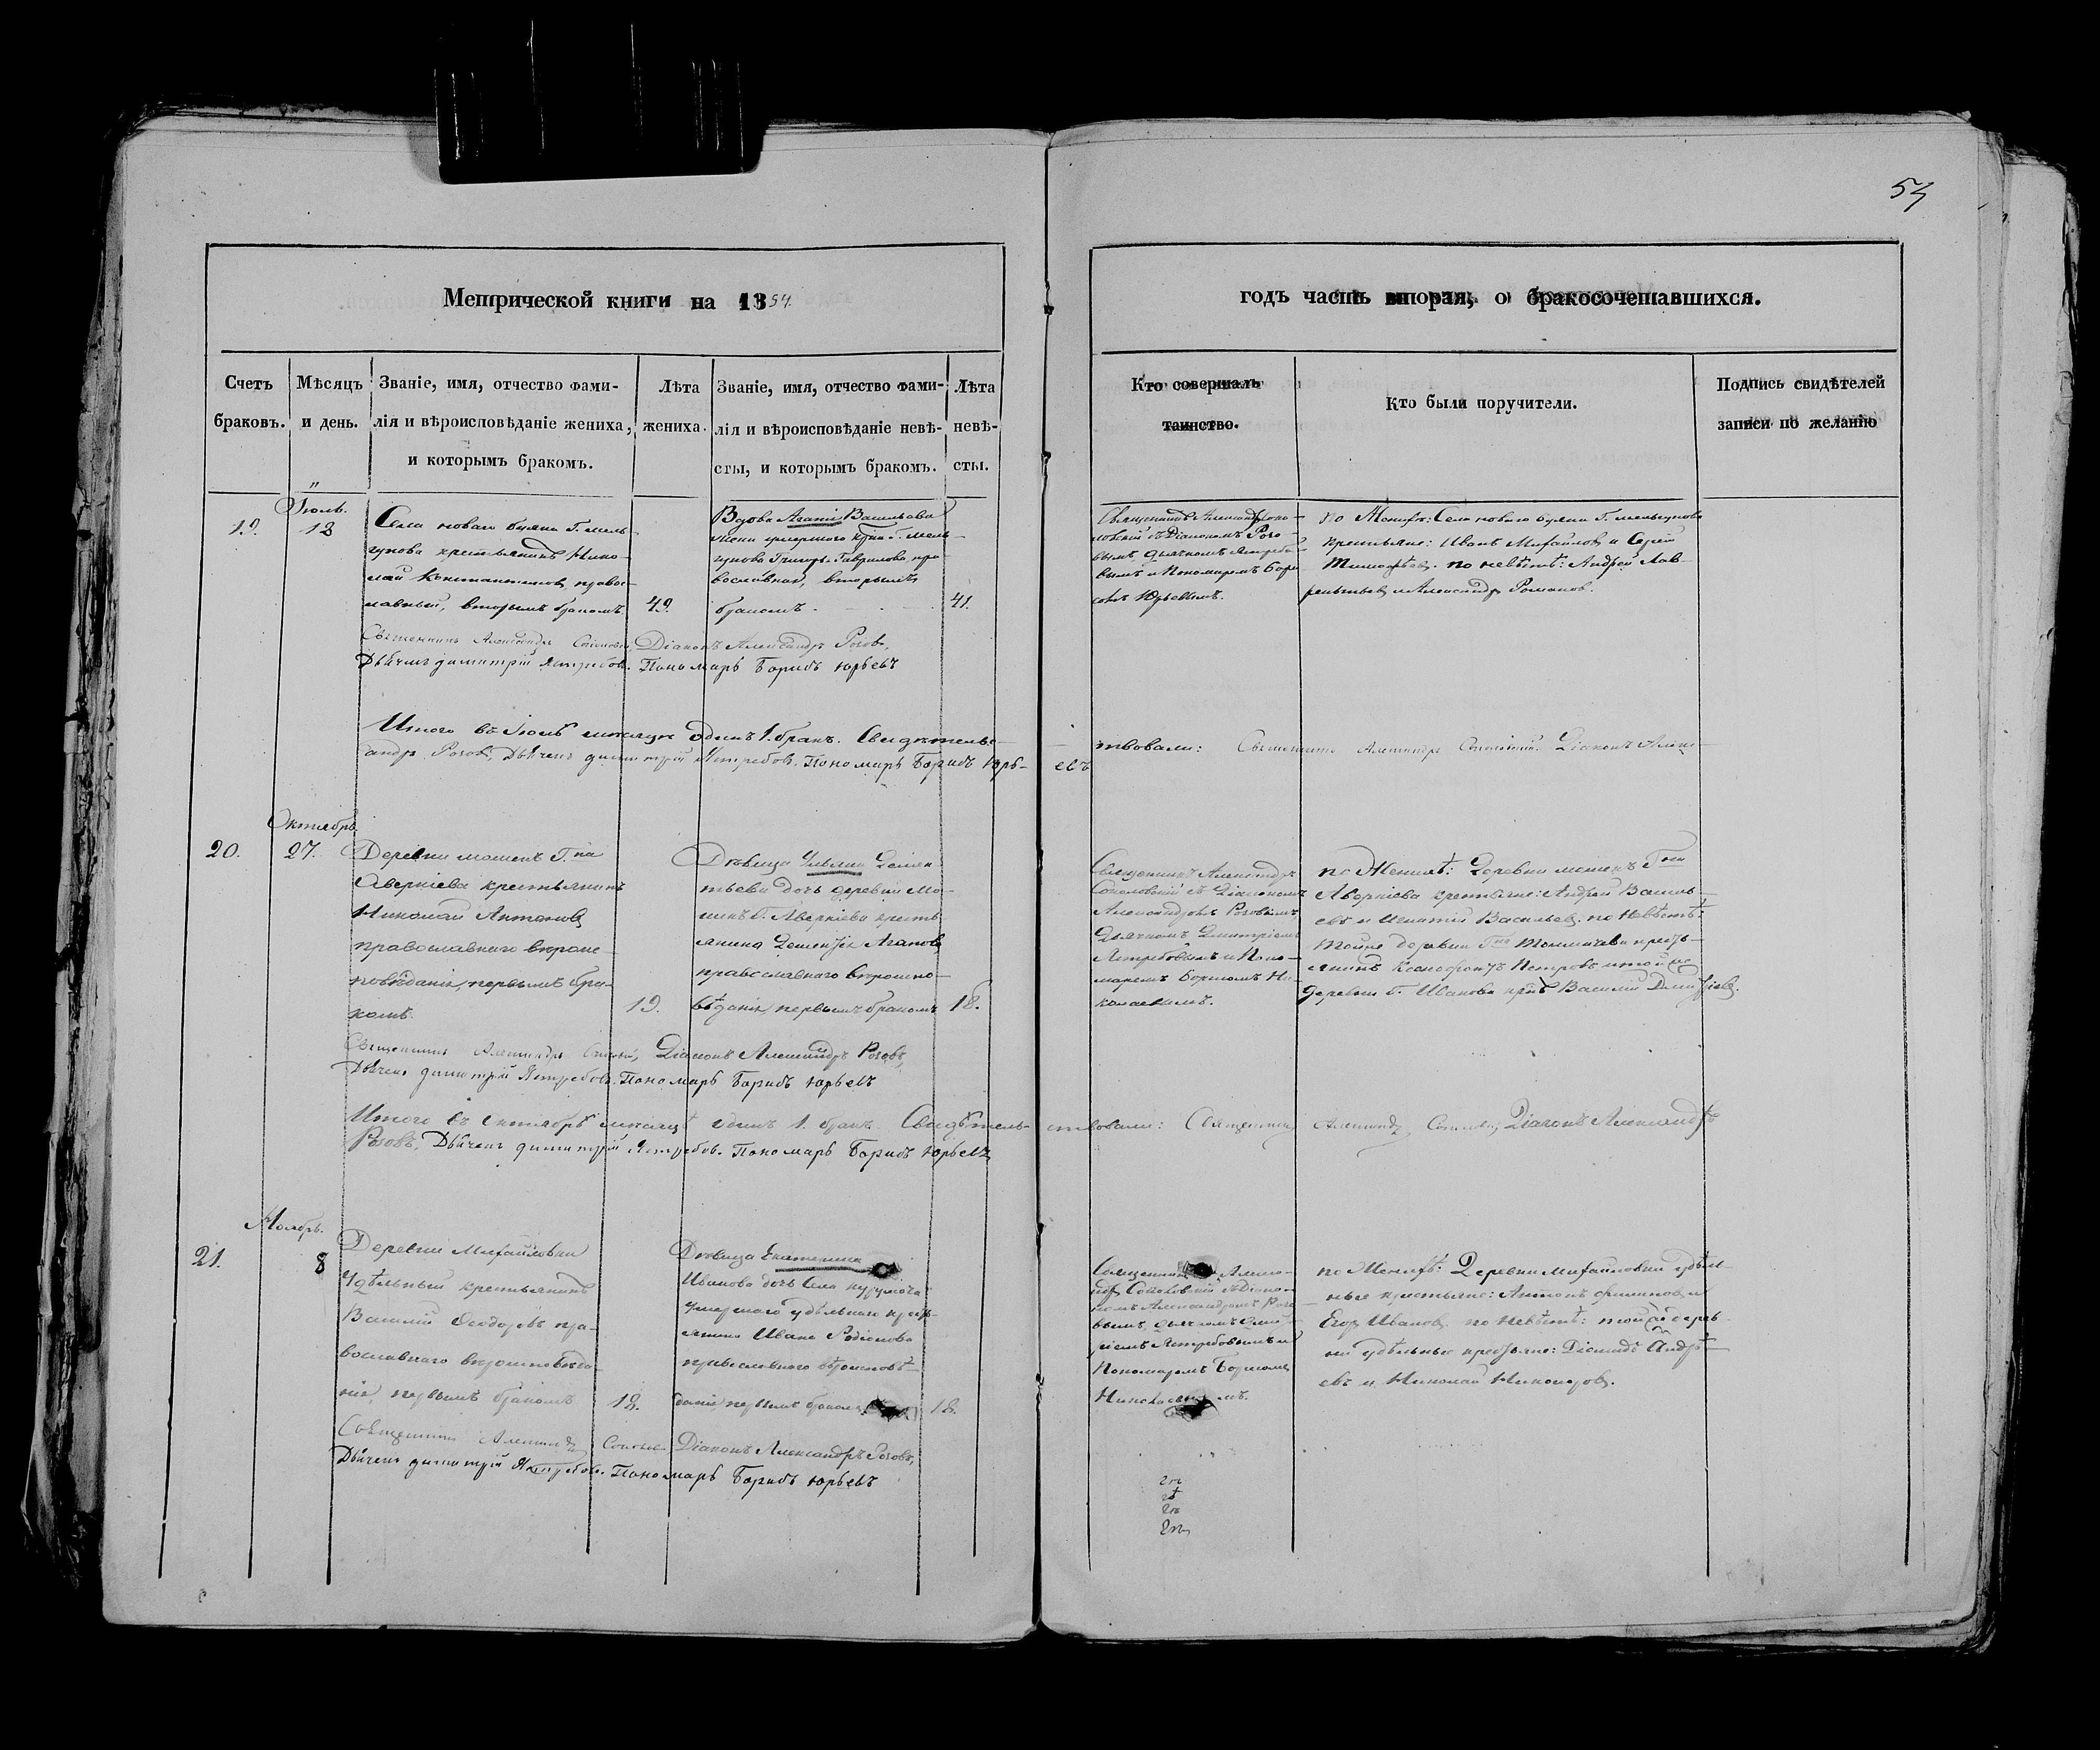 54
Метрической книги на 1854.
годъ часть вторая, о бракосочетавшихся.
Счетъ браковъ.
Мѣсяцъ и день.
Званіе, имя, отчество фами-
лія и вѣроисповѣданіе жениха,
и которымъ бракомъ.
Лѣта жениха.
Званіе, имя, отчество фами-
лія и вѣроисповѣданіе невѣ-
сты, и которымъ бракомъ.
Лѣта невѣ-
сты.
Кто совершалъ
таинство.
Кто были поручители.
Подпись свидѣтелей
записи по желанію
Іюль.
19.
13
Села новаго буяна Г. мель-
гунова крестьянинъ Нико-
лай Константиновъ, правос-
лавный, вторымъ бракомъ
49.
Вдова Агапія Васильева
жена умершаго кр-на Г. мель-
гунова Григорья Гаврилова пра-
вославная, вторымъ
бракомъ
41.
Священникъ Александръ Соко-
ловскій съ Діакономъ Рого-
вымъ, дьячкомъ Ястребо-
вымъ и Пономаремъ Бори-
сомъ Юрьевымъ.
по Женихѣ: Села новаго буяна Г. мельгунова
крестьяне: Иванъ Михайловъ и Сергѣй
Тимофѣевъ. по невѣстѣ: Андрей Лав-
рентьевъ и Александръ Романовъ.
Священникъ Александръ Соколовскій, Діаконъ Александръ Роговъ,
Дьячекъ димитрій Ястребовъ. Пономарь Борисъ Юрьевъ
Итого въ Іюлѣ мѣсяцѣ одинъ 1. бракъ. Свидѣтельс-
твовали: Священникъ Александръ Соколовскій. Діаконъ Алекс-
андръ Роговъ, Дьячекъ димитрій Ястребовъ. Пономарь Борисъ Юрь-
евъ
Октябрь.
20.
27.
Деревни мошекъ Г.на
Аверкіева крестьянинъ
Николай Антоновъ
православнаго вѣроис-
повѣданія, первымъ бра-
комъ.
19.
Дѣвица Ульяна Демен-
тьева дочь деревни Мо-
шекъ Г. Аверкіева кресть-
янина Дементія Агапова
православнаго вѣроиспо-
вѣданія, первымъ бракомъ
18.
Священникъ Александръ
Соколовскій съ Діакономъ
Александромъ Роговымъ,
Дьячкомъ Димитріемъ
Ястребовымъ и Поно-
маремъ Борисомъ Ни-
колаевымъ.
по Женихѣ: Деревни мошекъ Г.на
Аверкіева крестьяне: Андрей Василь-
евъ и Игнатій Васильевъ. по Невѣстѣ:
тойже деревни Г.на кресть-
янинъ Ксенофонтъ Петровъ и той же
деревни Г. Иванова кр-нъ Василій
Священникъ Александръ Соколовскій, Діаконъ Александръ Роговъ,
Дьячекъ димитрій Ястребовъ. Пономарь Борисъ Юрьевъ
Итого въ Октябрѣ мѣсяцѣ одинъ 1. бракъ. Свидѣтель-
ствовали: Священникъ Александръ Соколовскій, Діаконъ Александръ
Роговъ, Дьячекъ димитрій Ястребовъ. Пономарь Борисъ Юрьевъ
Ноябрь.
21.
8
Деревни Михайловки
Удѣльный крестьянинъ
Василій Ѳеодоровъ пра-
вославнаго вѣроисповѣда-
нія, первымъ бракомъ
18.
Дѣвица Екатерина
Иванова дочь Села курумоча
умершаго удѣльнаго крест-
янина Ивана Родіонова
православнаго вѣроисповѣ-
данія первымъ бракомъ
18.
Священникъ Алекса-
ндръ Соколовскій съ Діако-
номъ Александромъ Рого-
вымъ, дьячкомъ Дими-
тріемъ Ястребовымъ и
Пономаремъ Борисомъ
Николаевымъ.
по Женихѣ: Деревни Михайловки удѣль-
ные крестьяне: Антонъ Филиповъ и
Егоръ Ивановъ. по Невѣстѣ: той же дерев-
ни удѣльные крестьяне: Діомидъ Андрѣ-
евъ и Николай Никоноровъ.
Священникъ Александръ Соколовскій Діаконъ Александръ Роговъ,
Дьячекъ димитрій Ястребовъ. Пономарь Борисъ Юрьевъ